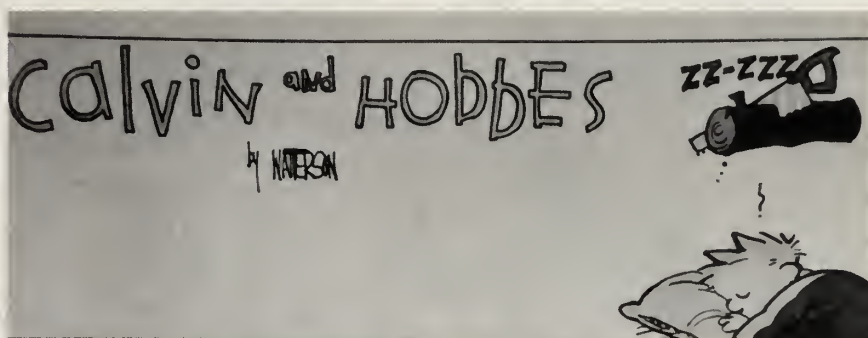 Calvin and HObbES
by WATERSON
ZZ-ZZZ